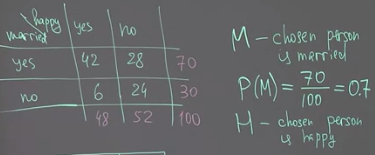 happy
married
yes no
yes 42 28 70
no 6 24 30
48 52 100
M - chosen person
is married
P(M) = 70/100 = 0.7
H - chosen person
is happy